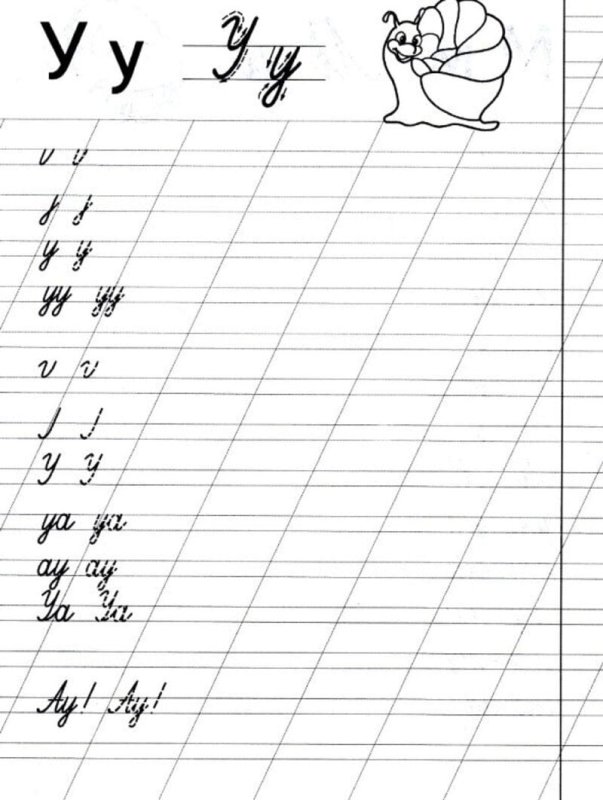 У у У у
у у
уу уу
У У
уа уа
ау ау
Уа Уа
Ау! Ау!